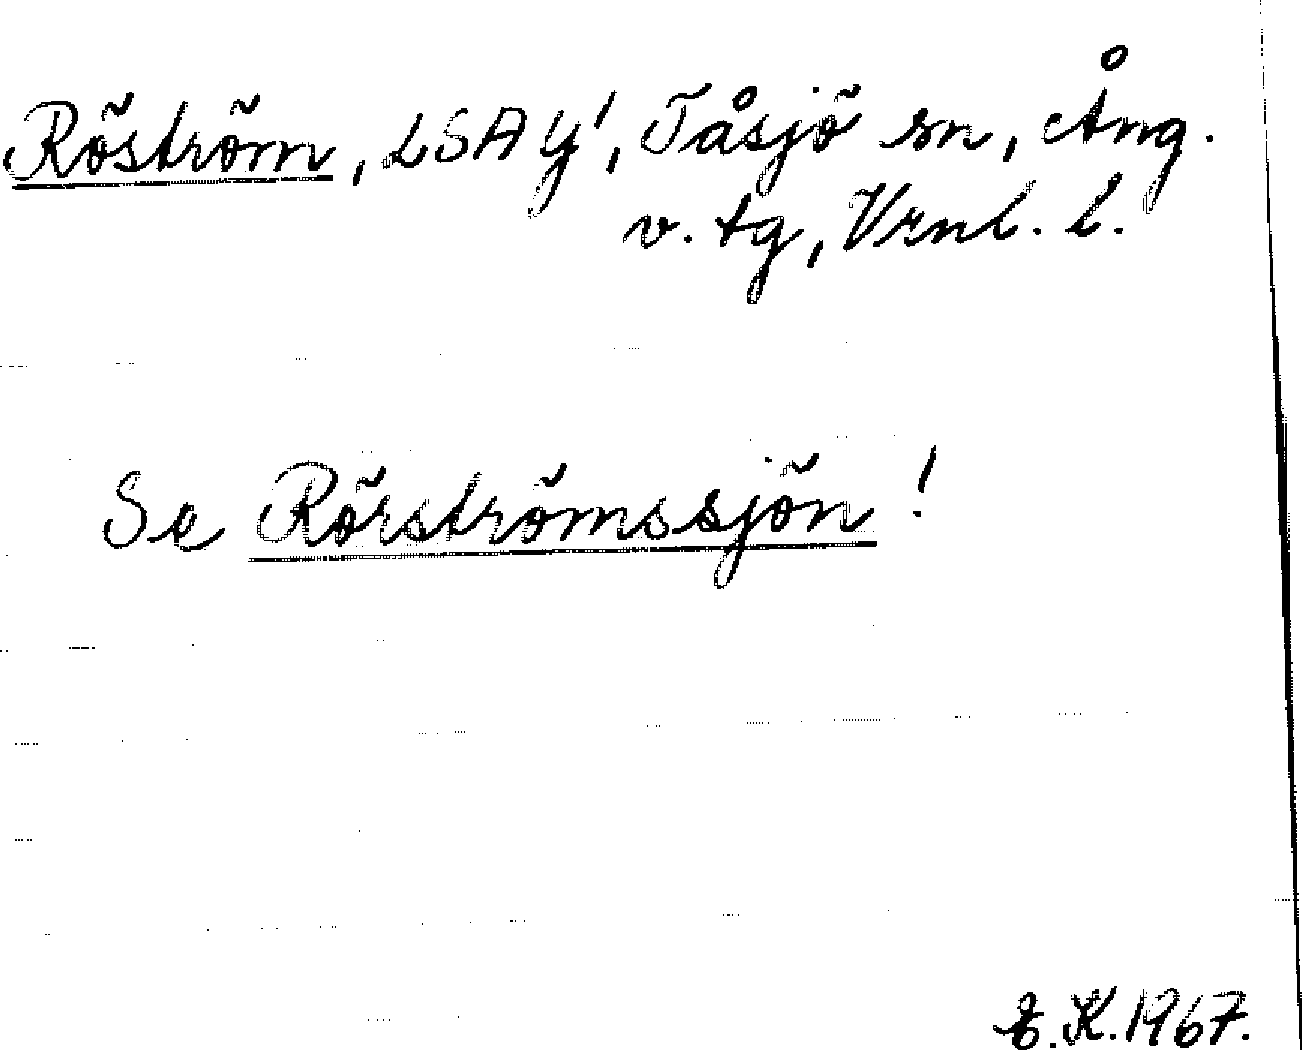 Röström, LSA Y!, Tåsjö sn, Ång.
v. tg, Vrnl. l.
Se Rörströmssjön!
E.K. 1967.